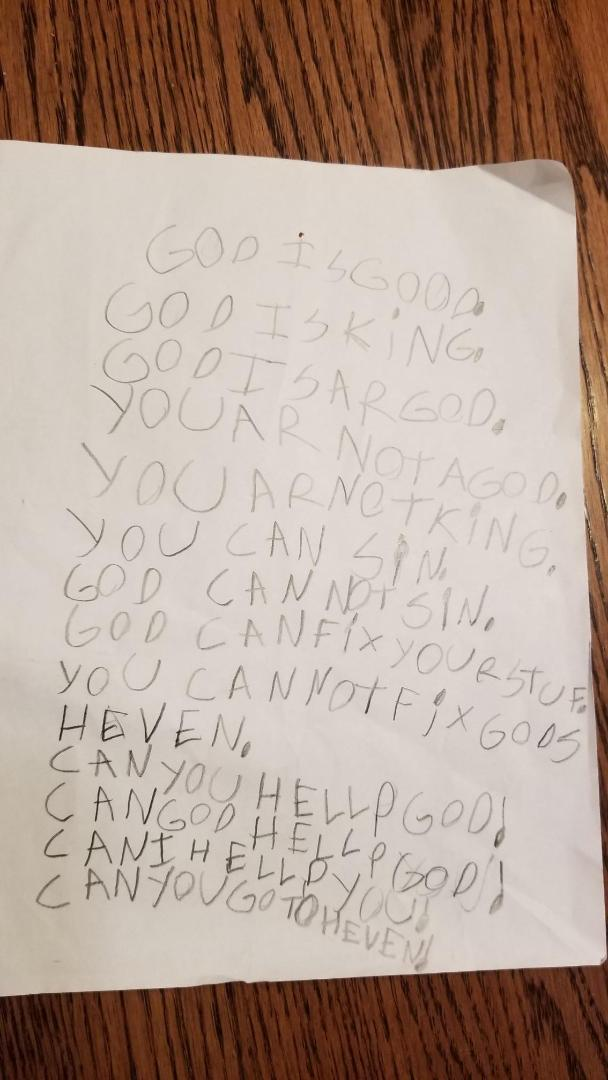 GOD IS GOOD.
GOD IS KiNG.
GOD IS AR GOD.
YOU AR NOt A GOD.
YOU AR NOt KiNG.
YOU CAN SiN.
GOD CAN NOt SIN.
GOD CAN FiX YOUR StUF.
YOU CAN NOt FiX GODS
HEVEN.
CAN YOU HELLP GOD!
CAN GOD HELLP GOD!
CAN I HELLP YOU!
CAN YOU GO TO HEVEN!